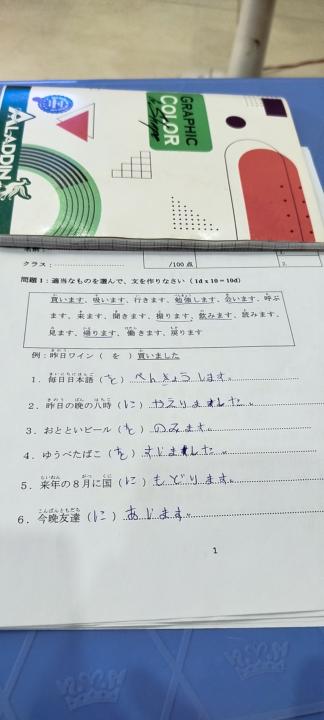 GRAPHIC
COLOR
Shape
ALADDIN
クラス：
/100 点
1.
2.
問題 1：適当なものを選んで、文を作りなさい（1d x 10 = 10d）
買います、吸います、行きます、勉強します、会います、呼び
ます、来ます、聞きます、撮ります、飲みます、読みます、
見ます、帰ります、働きます、戻ります
例：昨日ワイン（ を ）買いました
1. 毎日日本語（を）べんきょうします。
2. 昨日の晩の八時（に）かえりました。
3. おとといビール（を）のみます。
4. ゆうべたばこ（を）すいました。
5. 来年の８月に国（に）もどります。
6. 今晩友達（に）あいます。
1